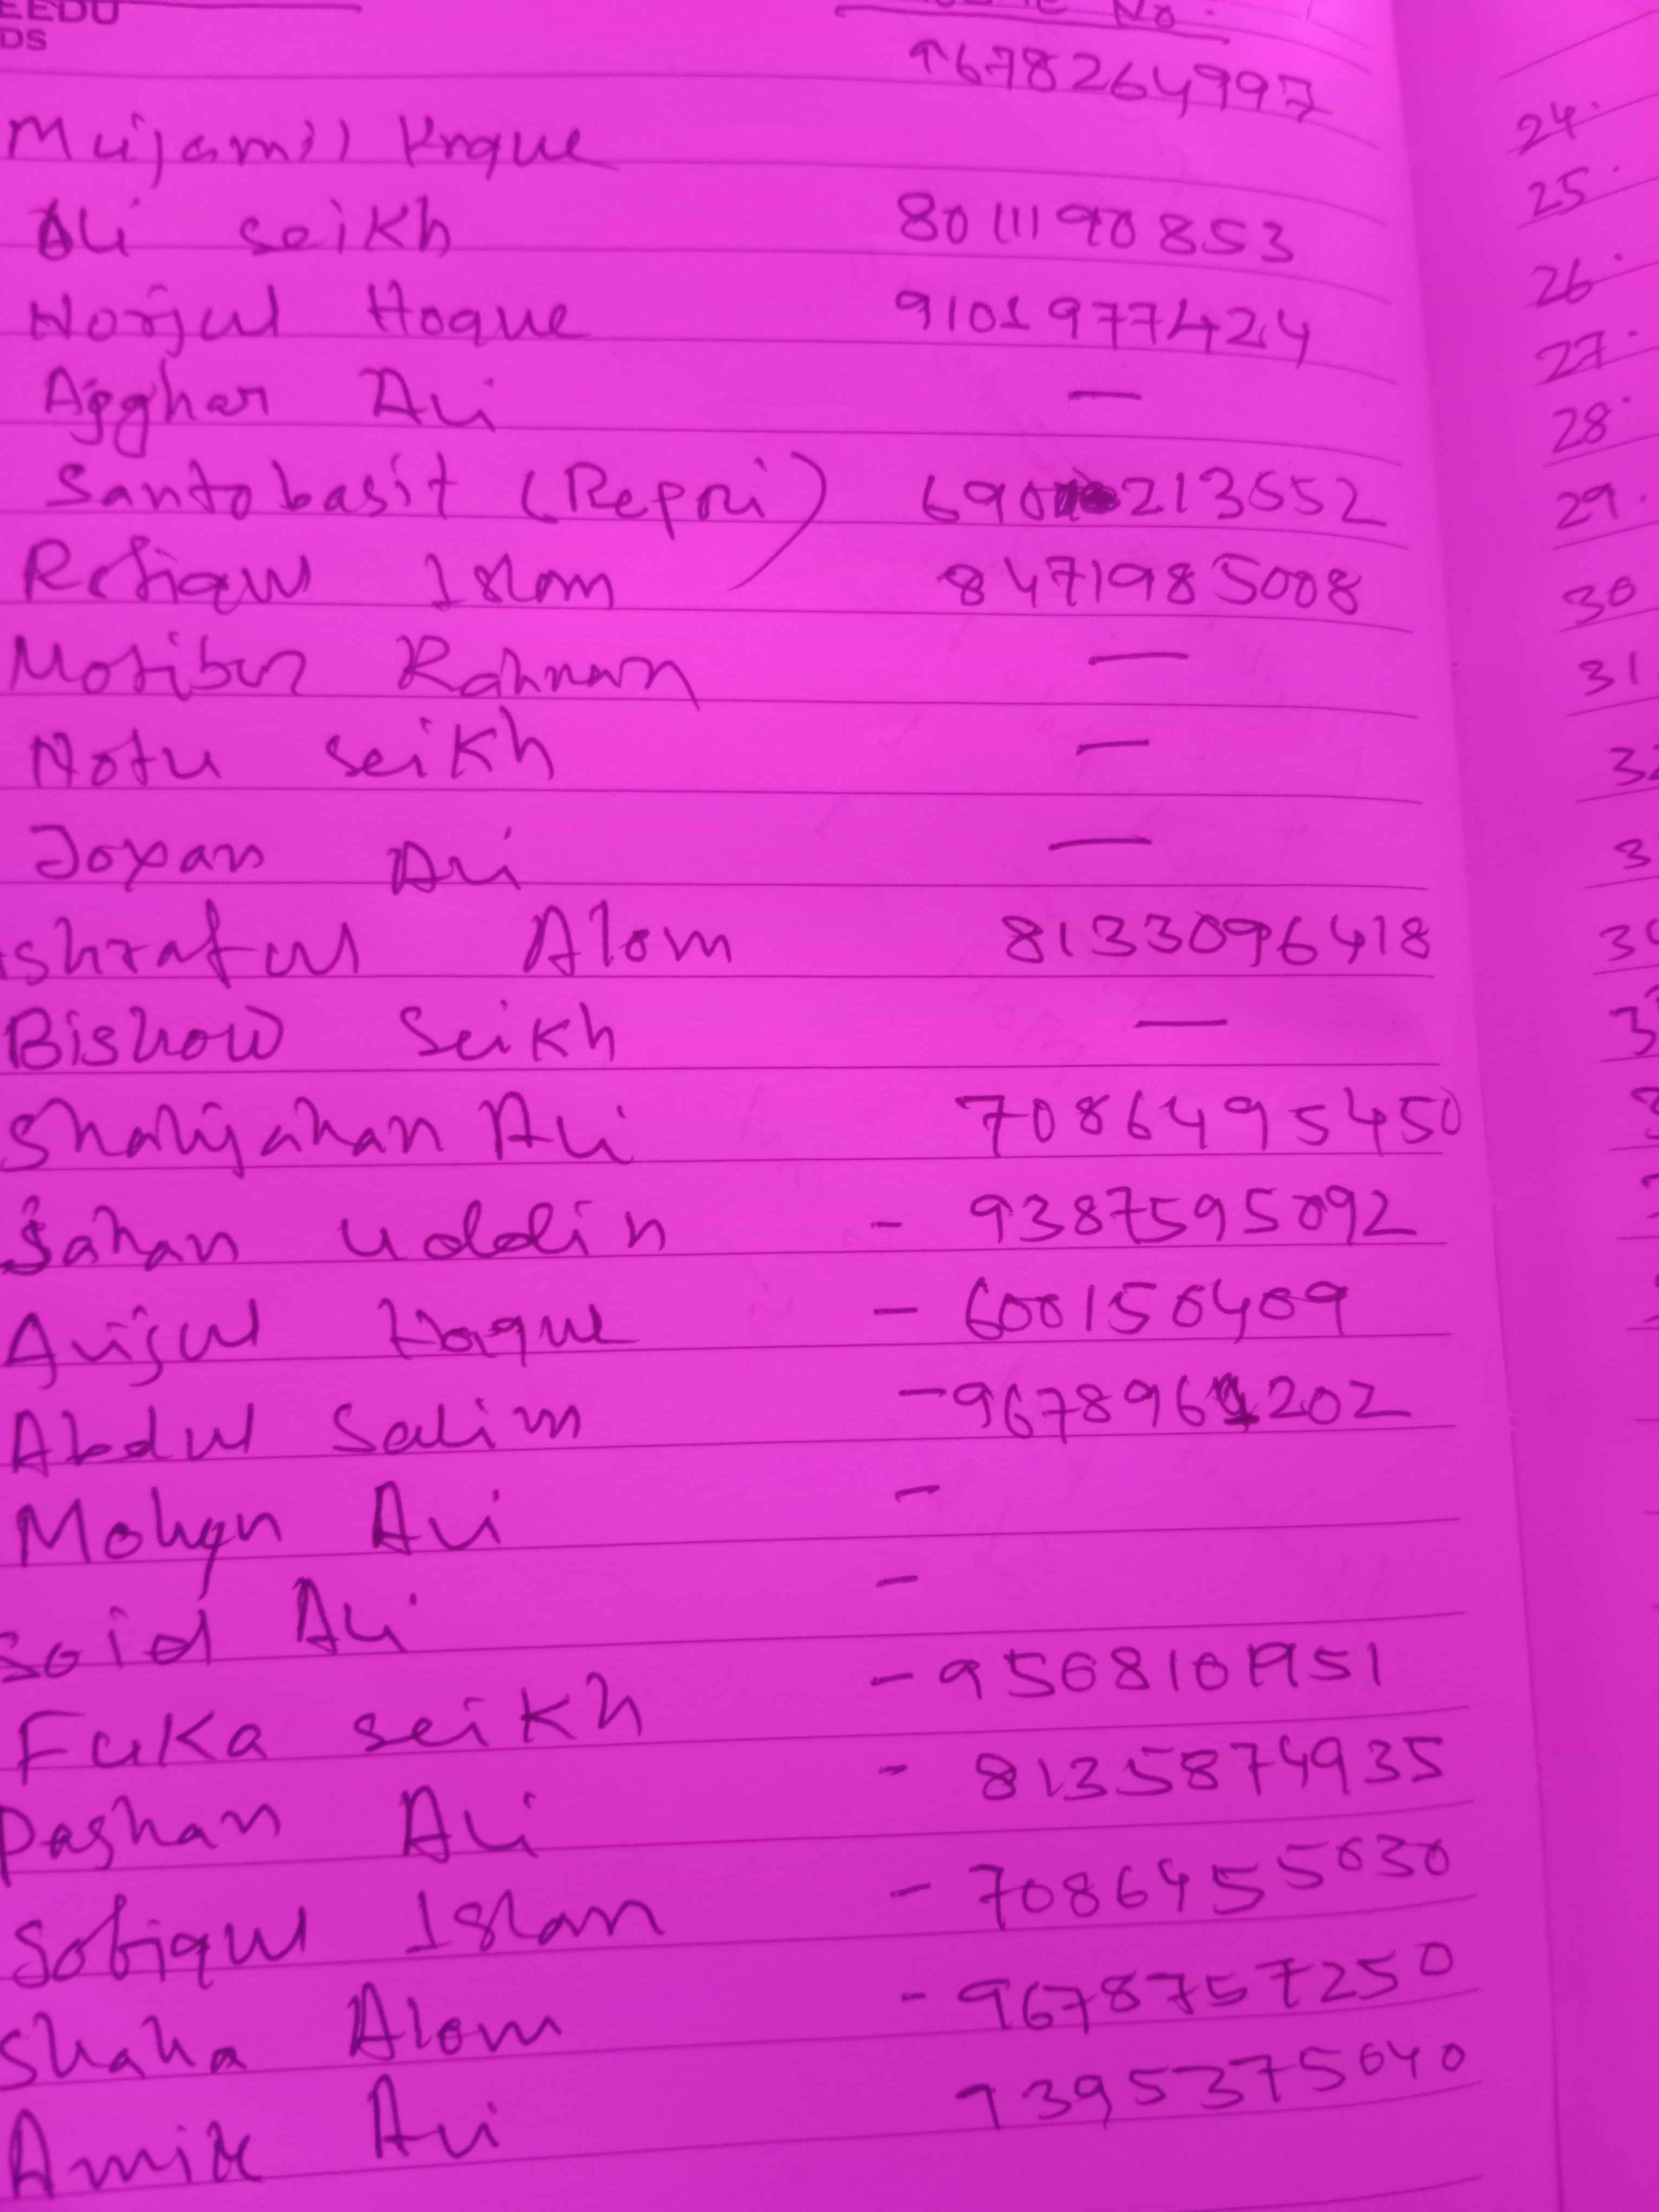 EEDU
DS
No.
9678264997
Mujamil Hoque
Ali Seikh 8011190853
Norjul Hoque 9101977424
Ajghar Ali —
Santobasit (Repri) 690 213652
Rofiqul Islom 8471985008
Motibur Rahman —
Notu Seikh —
Joynan Ali —
Ashraful Alom 8133096418
Bishow Seikh —
Shahjahan Ali 7086495450
Sahan Uddin - 9387595092
Arijul Hoque - 600150409
Abdul Salim - 9678969202
Ali -
Soid Ali -
Fuka Seikh -
Pashan Ali - 8135874935
Sofiqul Islam - 7086455030
Shaha Alom - 9678757250
Amir Ali 9395375040
24.
25.
26.
27.
28.
29.
30
31